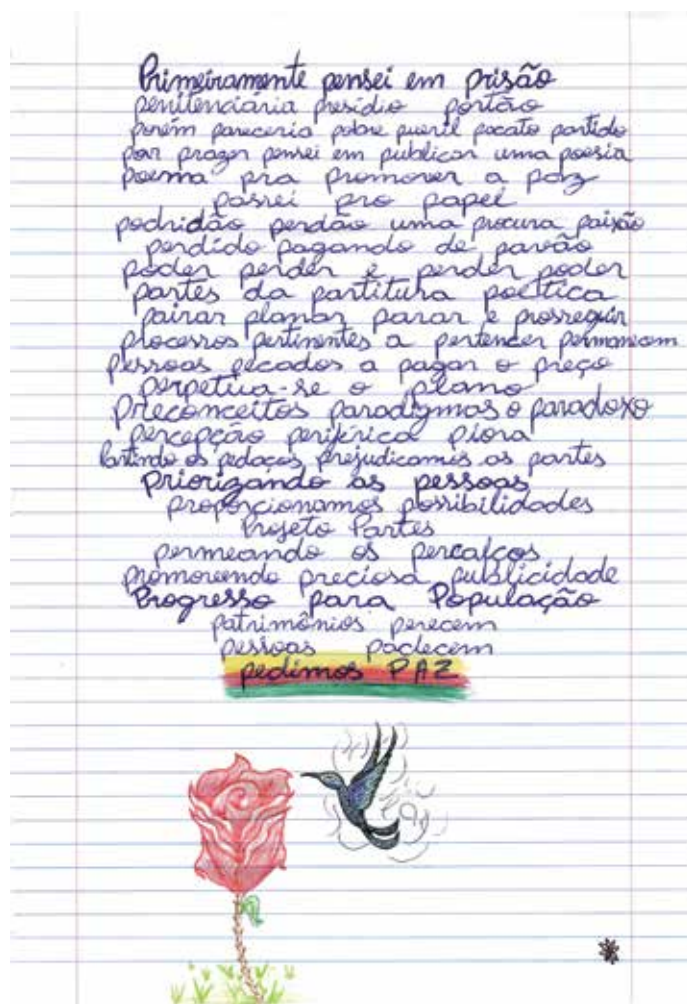 Primeiramente pensei em prisão
penitenciaria presídio portão
porém pareceria pobre pueril pacato partido
por prazer pensei em publicar uma poesia
poema pra promover a paz
passei pro papel
podridão perdão uma procura paixão
perdido pagando de pavão
poder perder é perder poder
partes da partitura poética
pairar planar parar e prosseguir
processos pertinentes a pertencer permanecem
pessoas pecados a pagar o preço
perpetua-se o plano
Preconceitos paradigmas o paradoxo
percepção periférica piora
Partindo os pedaços prejudicamos as partes
Priorizando as pessoas
proporcionamos possibilidades
Projeto Partes
permeando os percalços
promovendo preciosa publicidade
Progresso para População
patrimônios perecem
pessoas padecem
pedimos PAZ